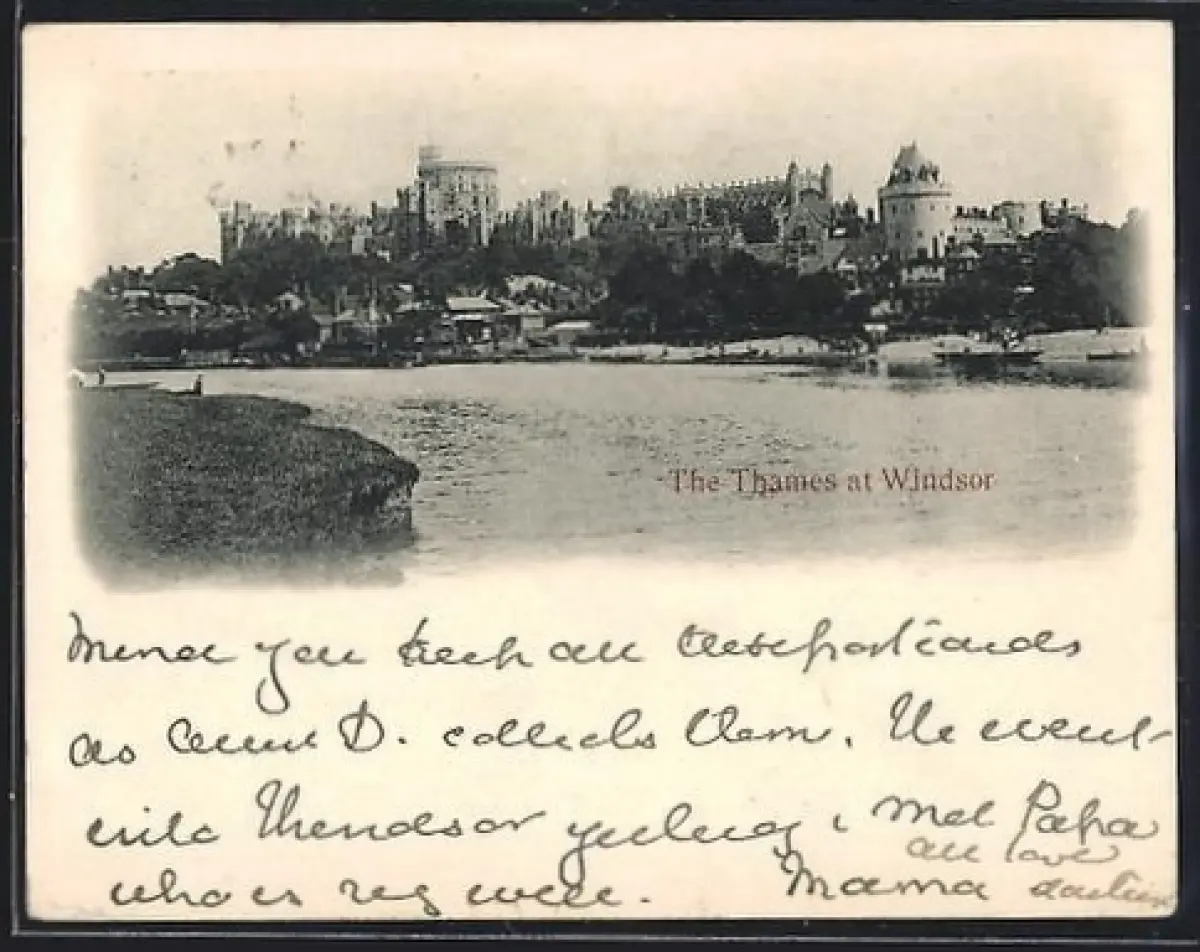 The Thames at Windsor
Mind you keep all these postcards
as Count D. collects them. We went
into Windsor yesterday & met Papa
who is very well. Mama
all love